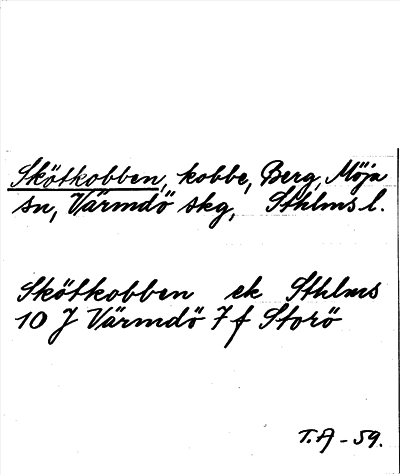 Skötkobben, kobbe, Berg, Möja
sn, Värmdö skg, Sthlms l.
Skötkobben ek Sthlms
10 J Värmdö 7 f Storö
T.A - 59.